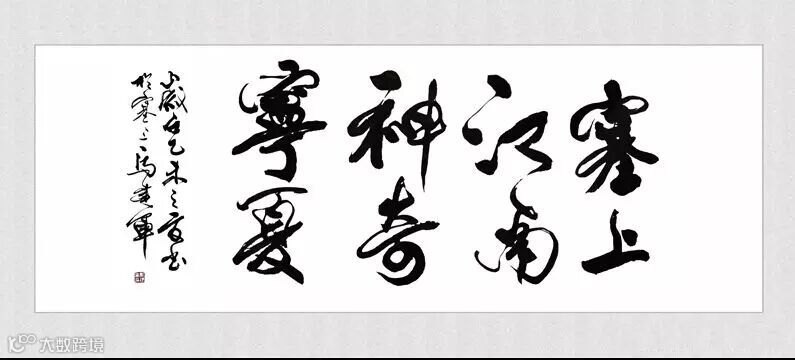 塞上
江南
神奇
寧夏
歲在乙未之夏书
於塞上馬建軍
大数跨境